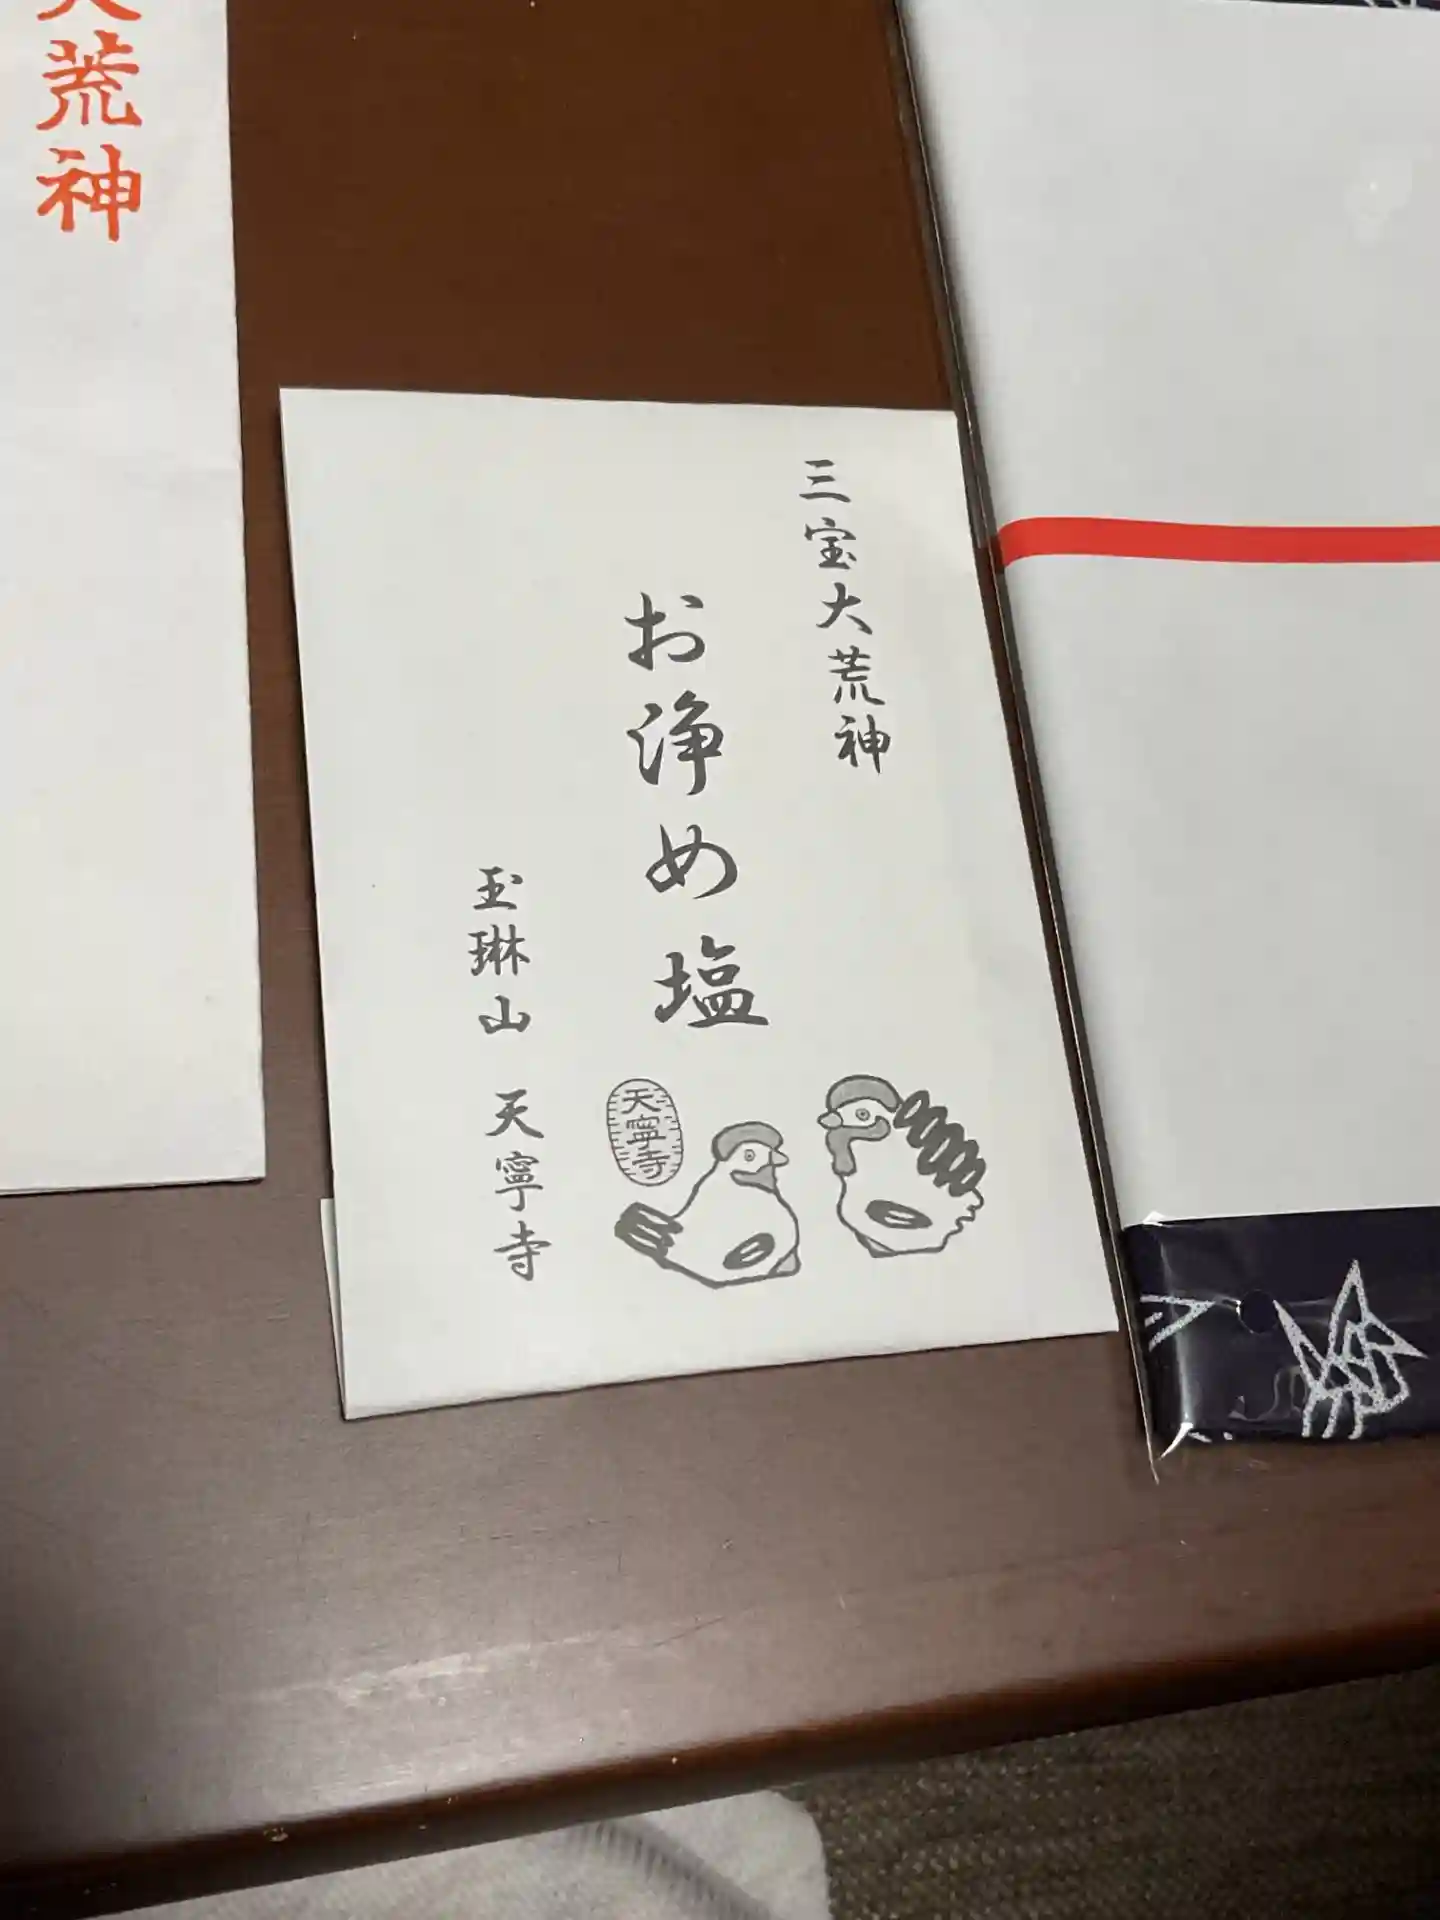 荒神
三宝大荒神
お浄め塩
玉琳山 天寧寺
天寧寺